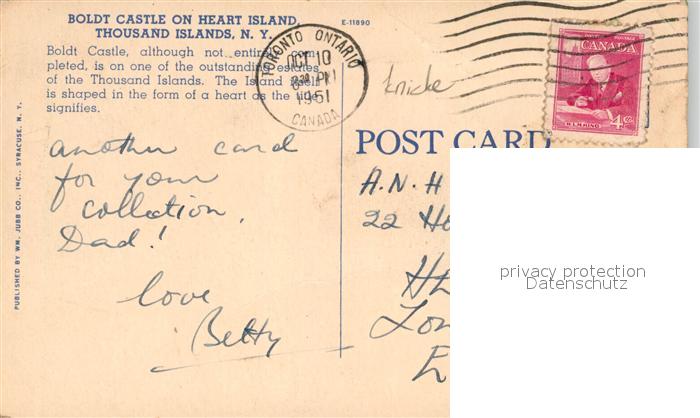 BOLDT CASTLE ON HEART ISLAND,
THOUSAND ISLANDS, N. Y.
E-11890
Boldt Castle, although not entirely com-
pleted, is on one of the outstanding estates
of the Thousand Islands. The Island itself
is shaped in the form of a heart as the title
signifies.
TORONTO ONTARIO
OCT 10
PM
1951
CANADA
knicke
POSTAGE POSTES
CANADA
4
POST CARD
another card
for your
collection,
Dad!
love
Betty
A.N.H
22 Ho
Lon
E
privacy protection
Datenschutz
PUBLISHED BY WM. JUBB CO., INC., SYRACUSE, N. Y.